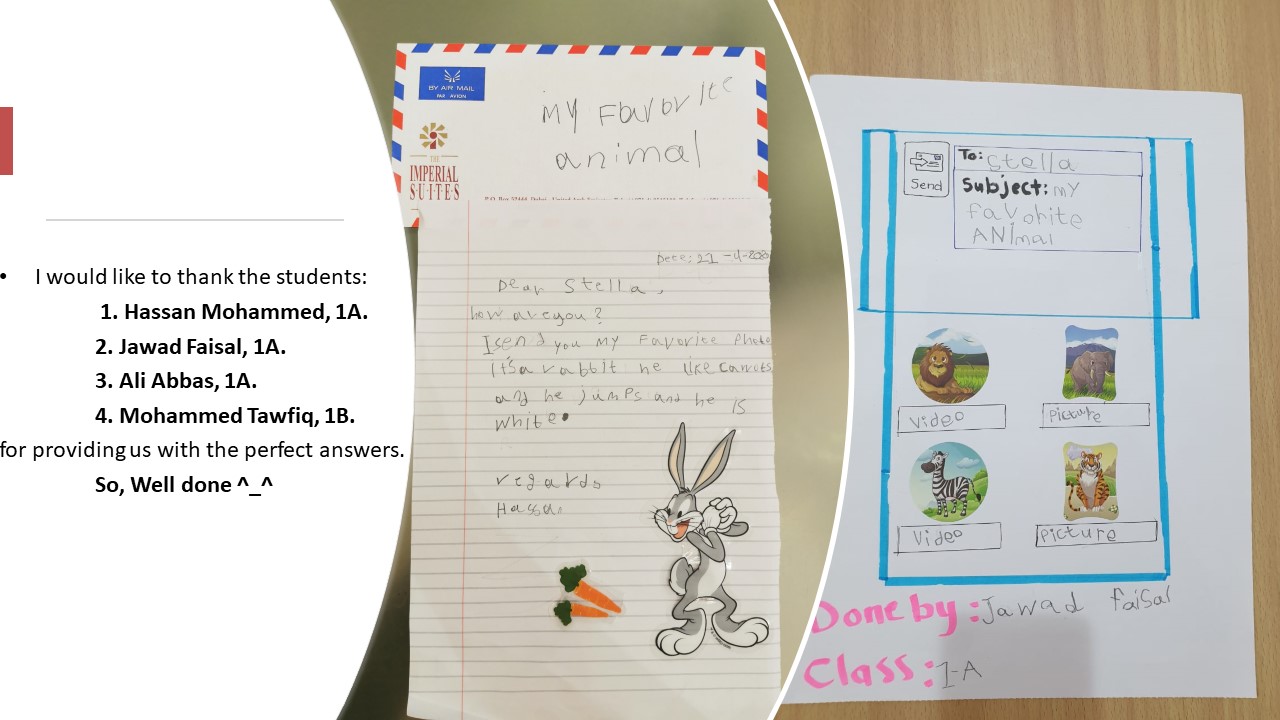 • I would like to thank the students:
1. Hassan Mohammed, 1A.
2. Jawad Faisal, 1A.
3. Ali Abbas, 1A.
4. Mohammed Tawfiq, 1B.
for providing us with the perfect answers.
So, Well done ^_^
BY AIR MAIL
PAR AVION
THE
IMPERIAL
SUITES
MY Favorite
animal
Dear Stella,
how are you?
I send you MY Favorite Photo
It's a rabbit he like carrots
and he jumps and he is
white.
regards
Hassan
Send
To: Stella
Subject: MY
favorite
ANImal
Video
Picture
Video
Picture
Done by: Jawad faisal
Class: 1-A